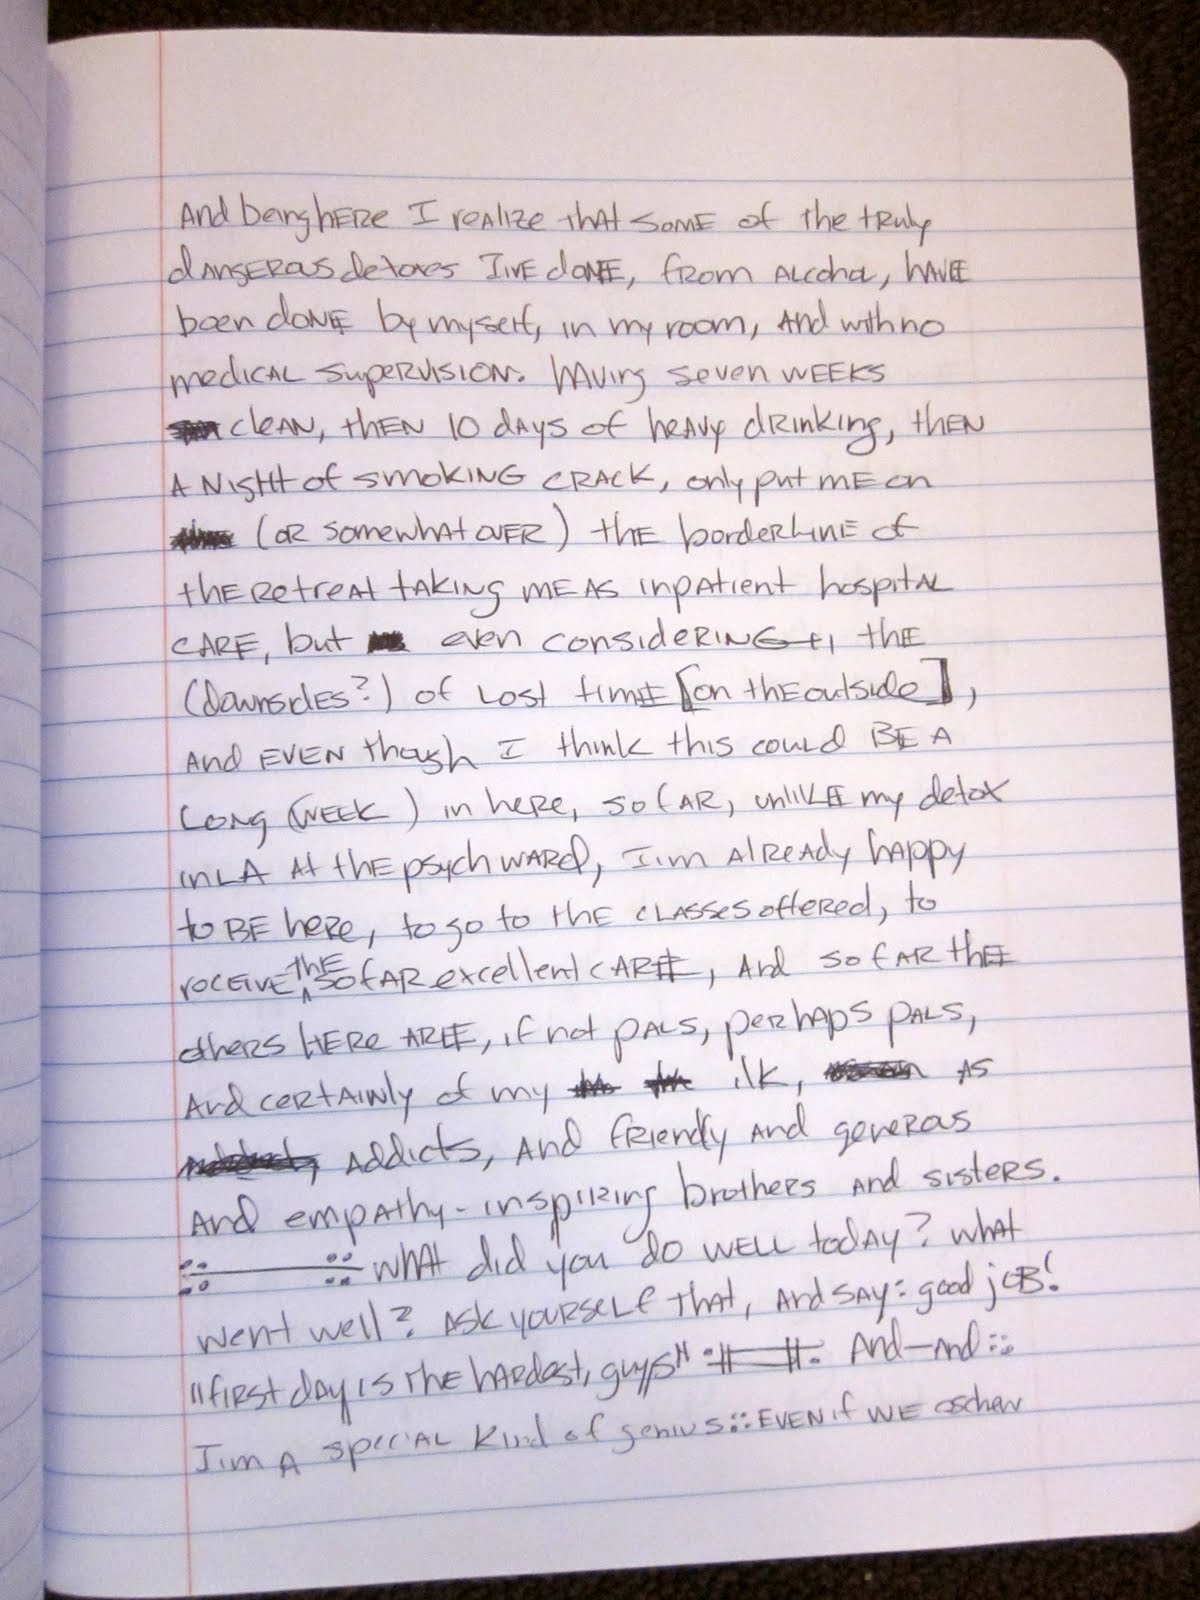 And being here I realize that some of the truly
dangerous detoxes I've done, from alcohol, have
been done by myself, in my room, and with no
medical supervision. having seven weeks
clean, then 10 days of heavy drinking, then
a night of smoking crack, only put me on
(or somewhat over) the borderline of
the retreat taking me as inpatient hospital
care, but even considering the
(downsides?) of lost time [on the outside],
and even though I think this could be a
long (week) in here, so far, unlike my detox
in LA at the psych ward, I'm already happy
to be here, to go to the classes offered, to
receive the so far excellent care, and so far the
others here are, if not pals, perhaps pals,
and certainly of my ilk, as
addicts, and friendly and generous
and empathy-inspiring brothers and sisters.
::——:: what did you do well today? what
went well? Ask yourself that, and say: good job!
"first day is the hardest, guys" And—and::
I'm a special kind of genius::even if we eschew